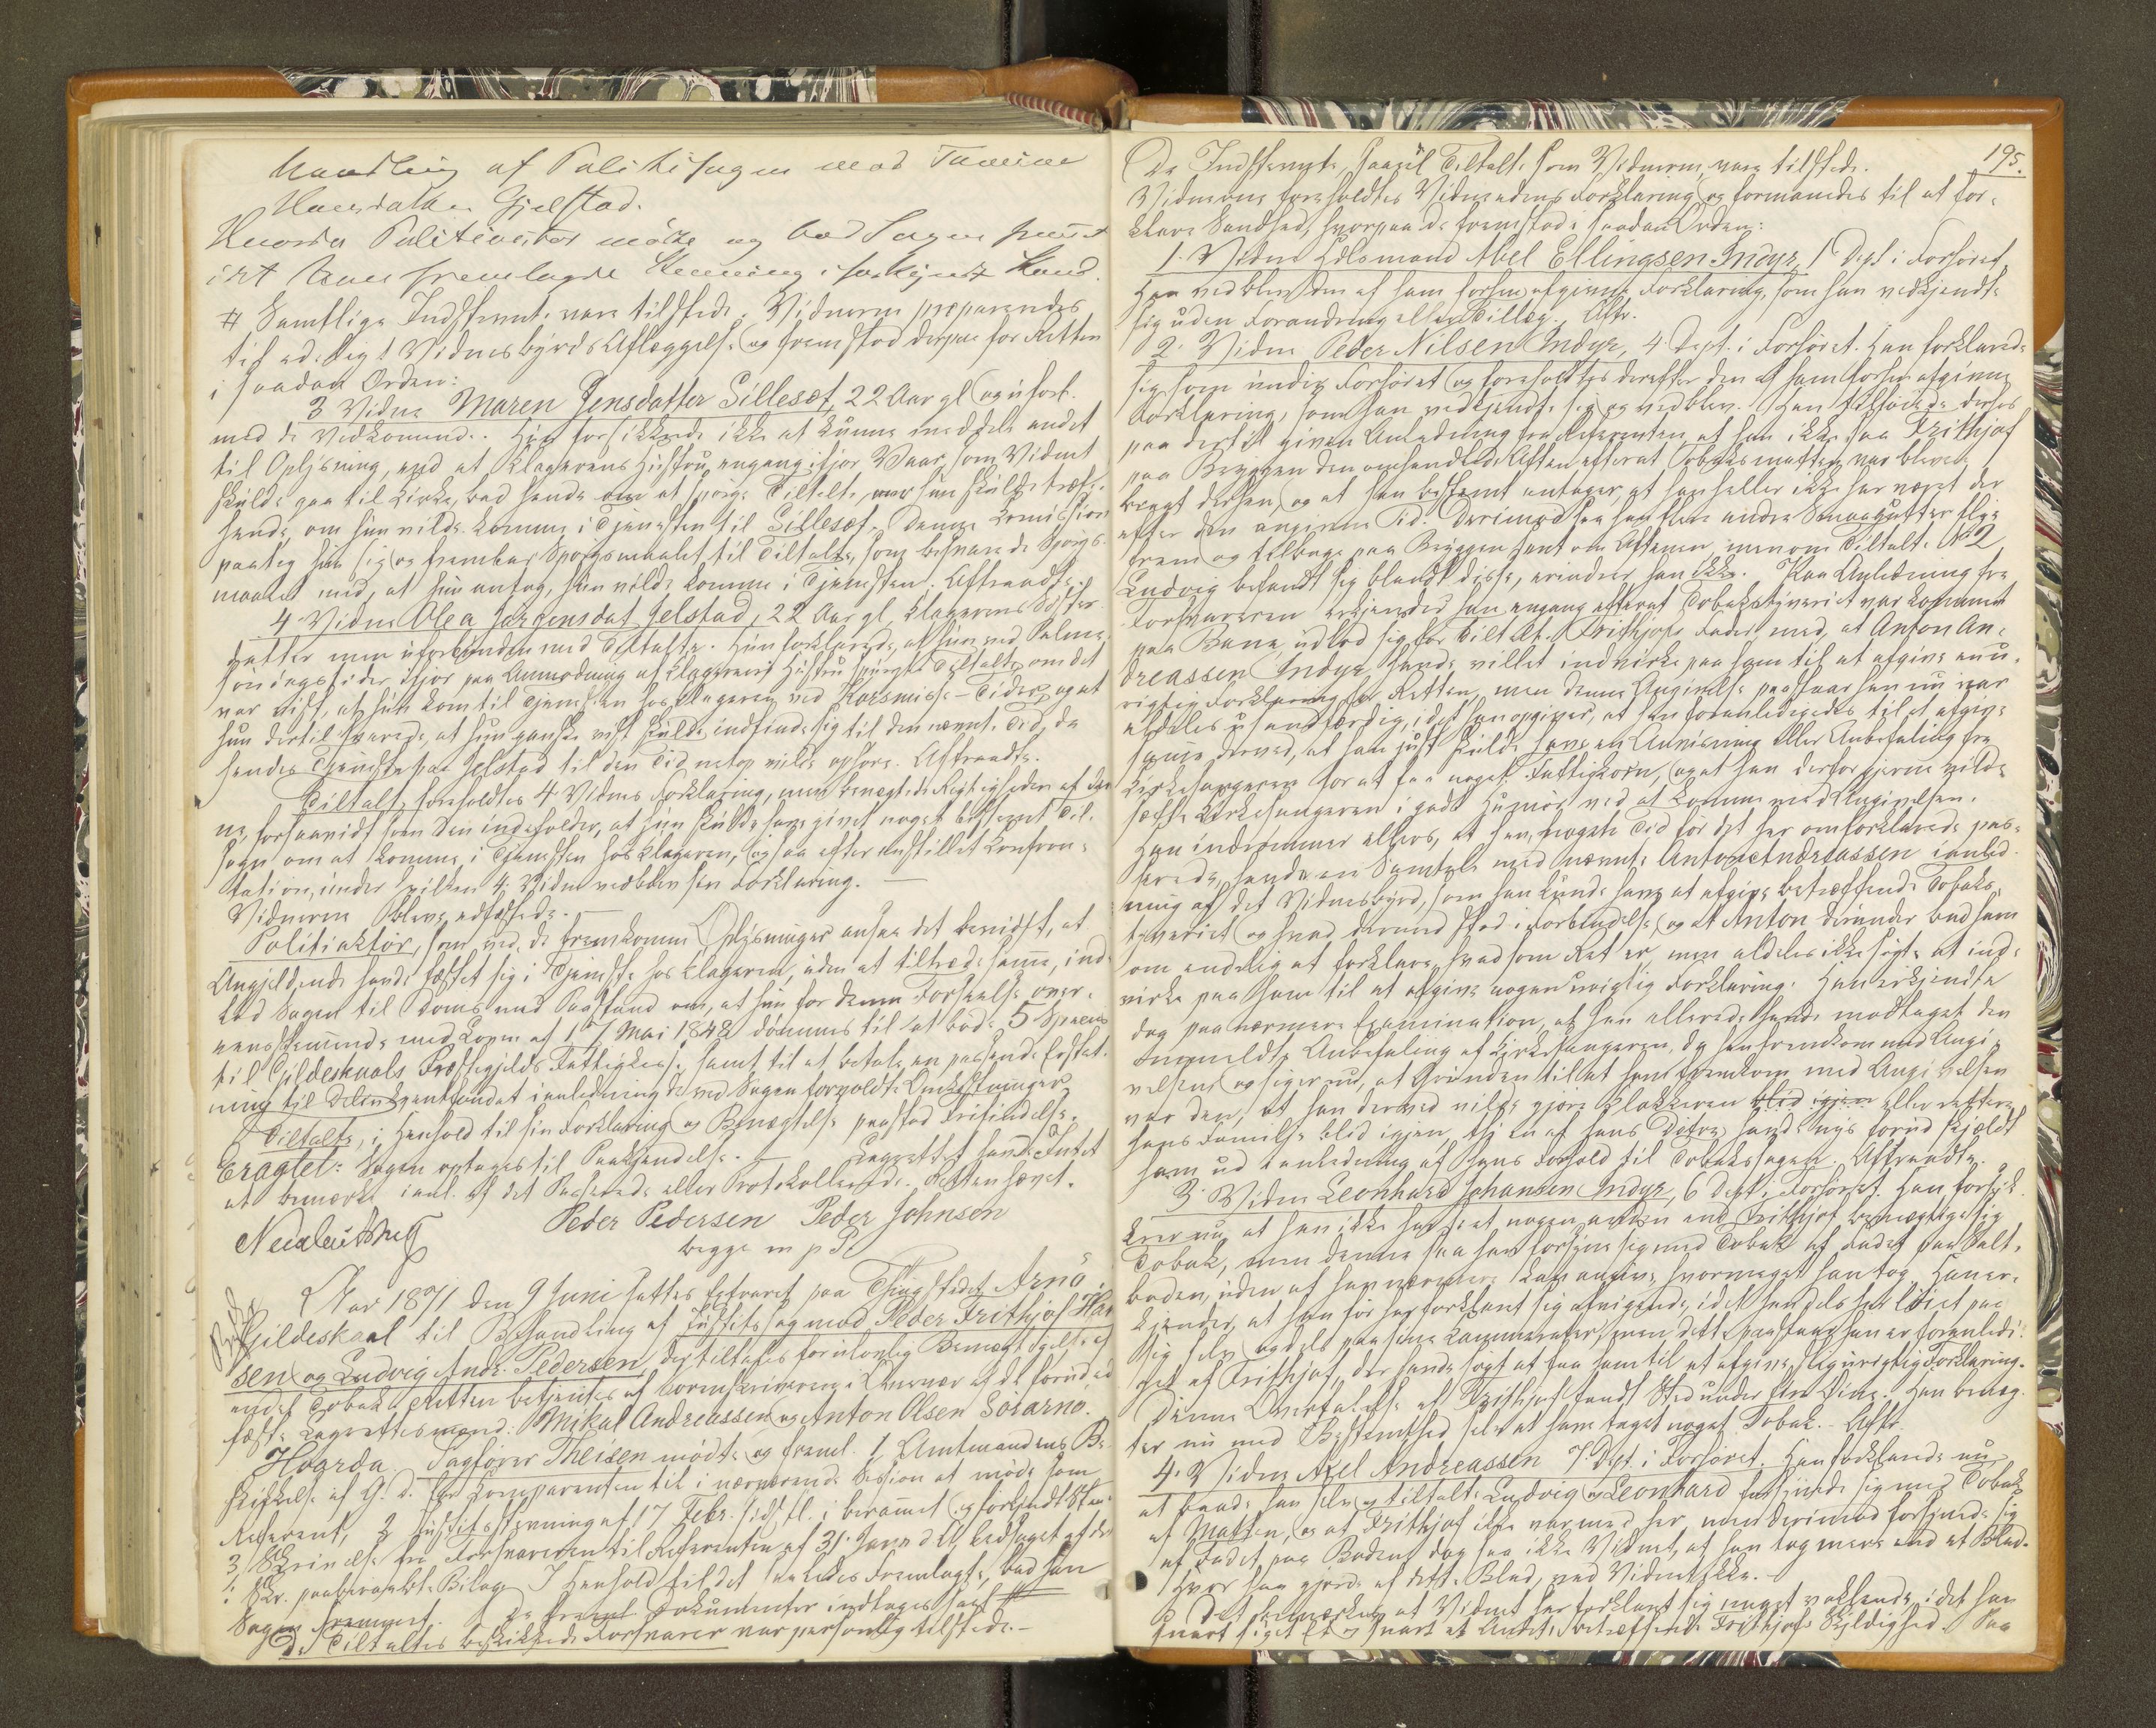 handling af Politisagen mod
Hansdatter Gjelstad.
Hvorda Politiaktor mødte og bad Sagen fremmet
idet han fremlagde Stevning i forkyndt Stand.
# Samtlige Indstevnte vare tilstede. Vidnerne præparerdes
til edeligt Vidnesbyrds Aflæggelse og fremstod derpaa for Retten
i saadan Orden:
3 Vidne Maren Jensdatter Sillesæt, 22 Aar gl. og uforb.
med de Vedkommende. Hun forsikkrede ikke at kunne meddele andet
til Oplysning, end at Klagerens Hustru engang ifjor Vaar, som Vidnet
skulde gaa til Kirke, bad hende om at spørge Tiltalte, naar hun skulde træffe
hende, om hun vilde komme i Tjenesten til Sillesæt. Denne Komission
paatog hun sig og frembar Spørgsmaalet til Tiltalte, som besvarede Spørgs-
maalet med, at hun antog, hun vilde komme i Tjenesten. Aftraadte.
4 Vidne Olea Jørgensdat. Jelstad, 22 Aar gl., Klagerens Søster-
datter men uforbunden med Tiltalte. Hun forklarede, at hun ved Palme-
søndagstider ifjor paa Anmodning af Klagerens Hustru spurgte Tiltalte, om det
var vist, at hun kom til Tjenesten hos Klageren ved Korsmisse-Tider, og at
hun dertil svarede, at hun ganske vist skulde indfinde sig til den nævnte Tid, da
hendes Tjeneste paa Jelstad til den Tid netop vilde ophøre. Aftraadte.
Tiltalte foreholdtes 4 Vidnes Forklaring, men benægtede Rigtigheden af den-
ne, forsaavidt som den indeholder, at hun skulde have givet noget bestemt Til-
sagn om at komme i Tjenesten hos Klageren, og saa efter anstillet Konfron-
tation, under hvilken 4 Vidne vedblev sin Forklaring. —
Vidnerne bleve edfæstede. —
Politiaktor, som ved de fremkomne Oplysninger ansaa det bevist, at
Angjeldende havde fæstet sig i Tjeneste hos Klageren, uden at tiltræde samme, ind-
lod Sagen til Doms med Paastand om, at hun for denne Forseelse over-
ensstemmende med Loven af 17 Mai 1848 dømmes til at bøde 5 Spd
til Gildeskaals Præstegjelds Fattigkasse, samt til at betale en passende Erstat-
ning til i anledning de ved Sagen forvoldte Omkostninger
Tiltalte, i Henhold til sin Forklaring og Benægtelse paastod Frifindelse.
Eragtet: Sagen optages til Paakjendelse. — Lagrettet havde Intet
at bemærke i anl. af det Passerede eller Protokollerede. Retten hævet.
Peder Pedersen Peder Johnsen
begge m. p. P.
Aar 1871 den 9 Juni sattes Extraret paa Thingstedet Arnö i
Gildeskaal til Behandling af Justitssag mod Peder Frithjof Han
sen og Ludvig Andr. Pedersen, der tiltales for ulovlig Bemægtigelse af
endel Tobak. Retten betjentes af Sorenskriveren i Overvær af de forud ed
fæstede Lagrettesmænd: Mikal Andreassen og Anton Olsen Sörarnö.
Hvorda Sagfører Theisen mødte og freml. 1, Amtmandens Be-
skikkelse af G. D. for Komparenten til i nærværende Session at møde som
Referent, 2 Justitsstevning af 17 Febr. sidstl. i beramet og forkyndt Stand
3, Skrivelse fra Forsvareren til Referenten af 31 d. A. ledsaget af de
i Skr. paaberaabte Bilag. I Henhold til det saaledes Fremlagte, bad han
Sagen fremmet. De freml. Dokumenter indtages saal. #
De Tiltaltes beskikkede Forsvarer var personlig tilstede. —
195.
De Indstevnte, saavel Tiltalte som Vidnerne, vare tilstede.
Vidnerne foreholdtes Vidneedens Forklaring og formanedes til at for-
klare Sandhed, hvorpaa de fremstod i saadan Orden:
1. Vidne Husmand Abel Ellingsen Indyr, 1 Dept. i Forhøret.
Han vedblev den af ham forhen afgivne Forklaring, som han vedkjendte
sig uden Forandring eller Tillæg. Aftr.
2. Vidne Peder Nilsen Indyr, 4 Dept. i Forhøret. Han forklarede
sig som under Forhøret og foreholdtes derefter den af ham forhen afgivne
Forklaring, som han vedkjendte sig og vedblev. Han tilføiede derhos
paa dertil given Anledning fra Referenten, at han ikke saa Frithjof
paa Bryggen den omhandlede Aften efterat Tobaksmatten var bleven
bragt derhen, og at han bestemt antager, at han heller ikke har været der
efter den angivne Tid. Derimod saa han flere andre Smaagutter fly
frem og tilbage paa Bryggen sent om Aftenen, men om Tiltalte No 2
Ludvig befandt sig blandt disse, erindrer han ikke. Paa Anledning fra
Forsvareren erkjender han engang efterat Tobakstyveriet var kommet
paa Bane, udlod sig for Tiltalte Frithjofs Fader med, at Anton An-
dreassen Indyr havde villet indvirke paa ham til at afgive en u-
rigtig Forklaring for Retten, men denne Angivelse paastaar han nu var
aldeles usandfærdig, idet han opgiver, at han foranledigedes til at afgive
samme derved, at han just skulde have en Anvisning eller Anbefaling fra
Kirkesangeren for at faa noget Fattigkorn, og at han derfor gjerne vilde
sætte Kirkesangeren i godt Humør ved at komme med Angivelsen.
Han indrømmer ellers, at han nogen Tid før det her omforklarede pas-
serede, havde en Samtale med nævnte Anton Andreassen i anled-
ning af det Vidnesbyrd, som han kunde have at afgive betræffende Tobaks-
tyveriet og hvad dermed stod i Forbindelse, og at Anton derunder bad ham
om endelig at forklare, hvad som Ret er, men aldeles ikke søgte at ind-
virke paa ham til at afgive nogen urigtig Forklaring. Han erkjendte
dog paa nærmere Examination, at han allerede havde modtaget den
ommeldte Anbefaling af Kirkesangeren, da han fremkom med Angi-
velsen, og siger nu, at Grunden til at han fremkom med Angivelsen
var den, at han derved vilde gjøre Klokkeren blid igjen eller rettere
hans Familie blid igjen, thi en af hans Døtre havde nys forud skjældt
ham ud i anledning af hans Forhold til Tobakssagen. Aftraadte.
3. Vidne Leonhard Johansen Indyr, 6 Dept. i Forhøret. Han forsik-
krer nu, at han ikke har seet nogen anden end Frithjof bemægtige sig
Tobak, men denne saa han forsyne sig med Tobak af Fadet paa Salt-
boden, uden at han nærmere kan angive, hvormeget han tog. Han er-
kjender, at han før har forklaret sig afvigende, idet han dels har løiet paa
sig selv og dels paa sine Kammerater, men dette paastaar han er foranledi-
get af Frithjof, der havde søgt at faa ham til at afgive slig urigtig Forklaring.
Denne Overtalelse af Frithjof fandt Sted under fire Øine. Han benæg-
ter nu med Bestemthed selv at have taget noget Tobak. Aftr.
4. Vidne Axel Andreassen 7 Dept. i Forhøret. Han forklarede nu,
at baade han selv og tiltalte Ludvig og Leonhard forsynede sig med Tobak
af Matten, og at Frithjof ikke var med her, men derimod forsynede sig
af Fadet paa Boden, dog saa ikke Vidnet, at han tog mere end et Blad.
Hvor han gjorde af dette Blad, ved Vidnet ikke. —
Det bemærkes at Vidnet har forklaret sig meget vaklende, idet han
snart siger Et og snart et Andet, betræffende Frithjofs Skyldighed. Paa